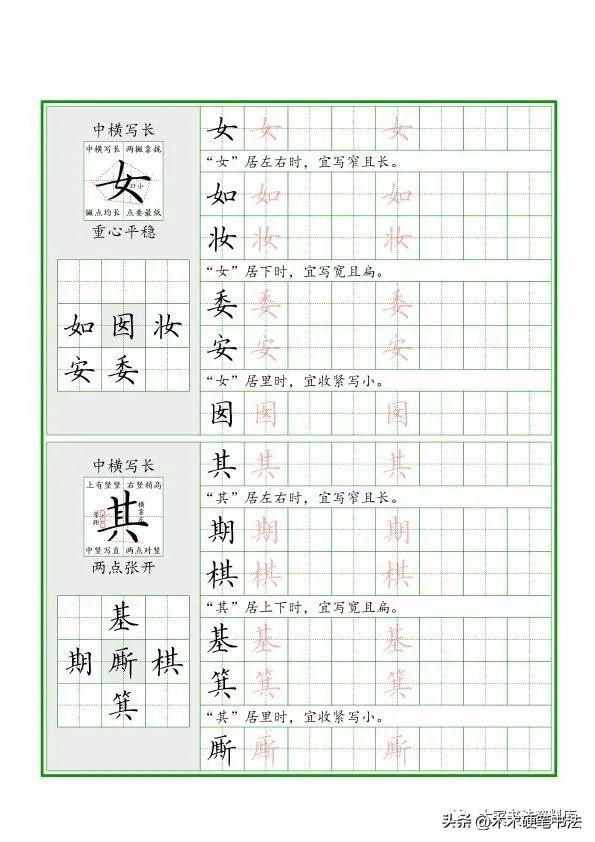 中横写长
中横写长 两撇靠拢
女
口小
撇点均长 点要最低
重心平稳
如 囡 妆
安 委
女 女 女
“女”居左右时，宜写窄且长。
如 如 如
妆 妆 妆
“女”居下时，宜写宽且扁。
委 委 委
安 安 安
“女”居里时，宜收紧写小。
囡 囡 囡
中横写长
上有竖竖 右竖稍高
其
等距
中竖写直 两点对竖
两点张开
基
期 厮 棋
箕
其 其 其
“其”居左右时，宜写窄且长。
期 期 期
棋 棋 棋
“其”居上下时，宜写宽且扁。
基 基 基
箕 箕 箕
“其”居里时，宜收紧写小。
厮 厮 厮
头条 @ 硬笔书法